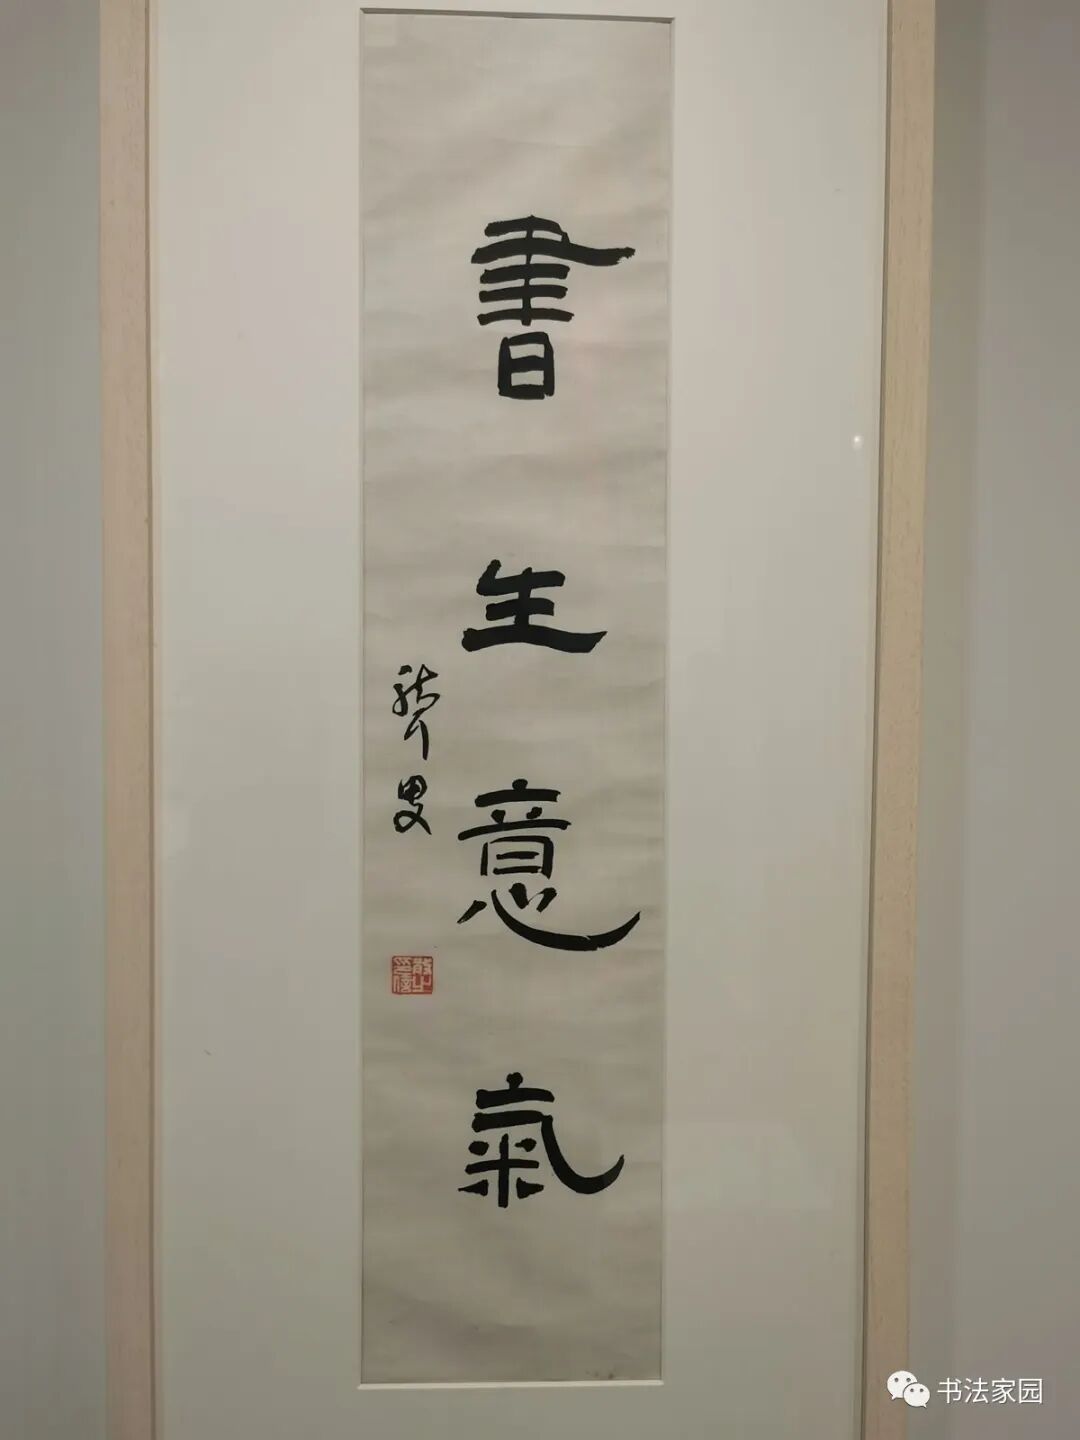 書生意氣
聾叟
书法家园